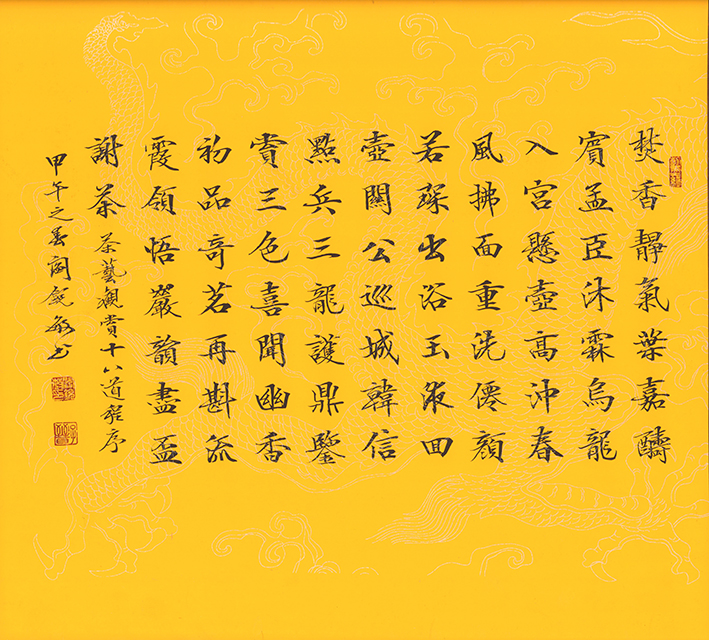 焚香靜氣葉嘉醻
賓孟臣沐霖烏龍
入宮懸壺高沖春
風拂面重洗僊顏
若琛出浴玉液回
壺關公巡城韓信
點兵三龍護鼎鑒
賞三色喜聞幽香
初品奇茗再斟流
霞領悟巖韻盡盃
謝茶 茶藝觀賞十八道程序
甲午之春閩饒敏書